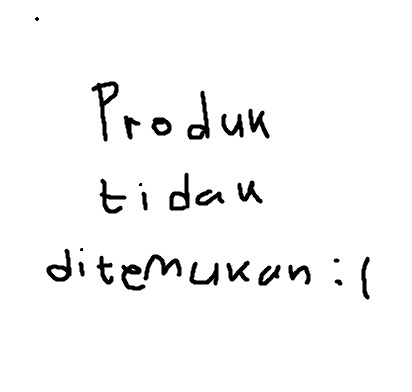 Produk
tidak
ditemukan :(